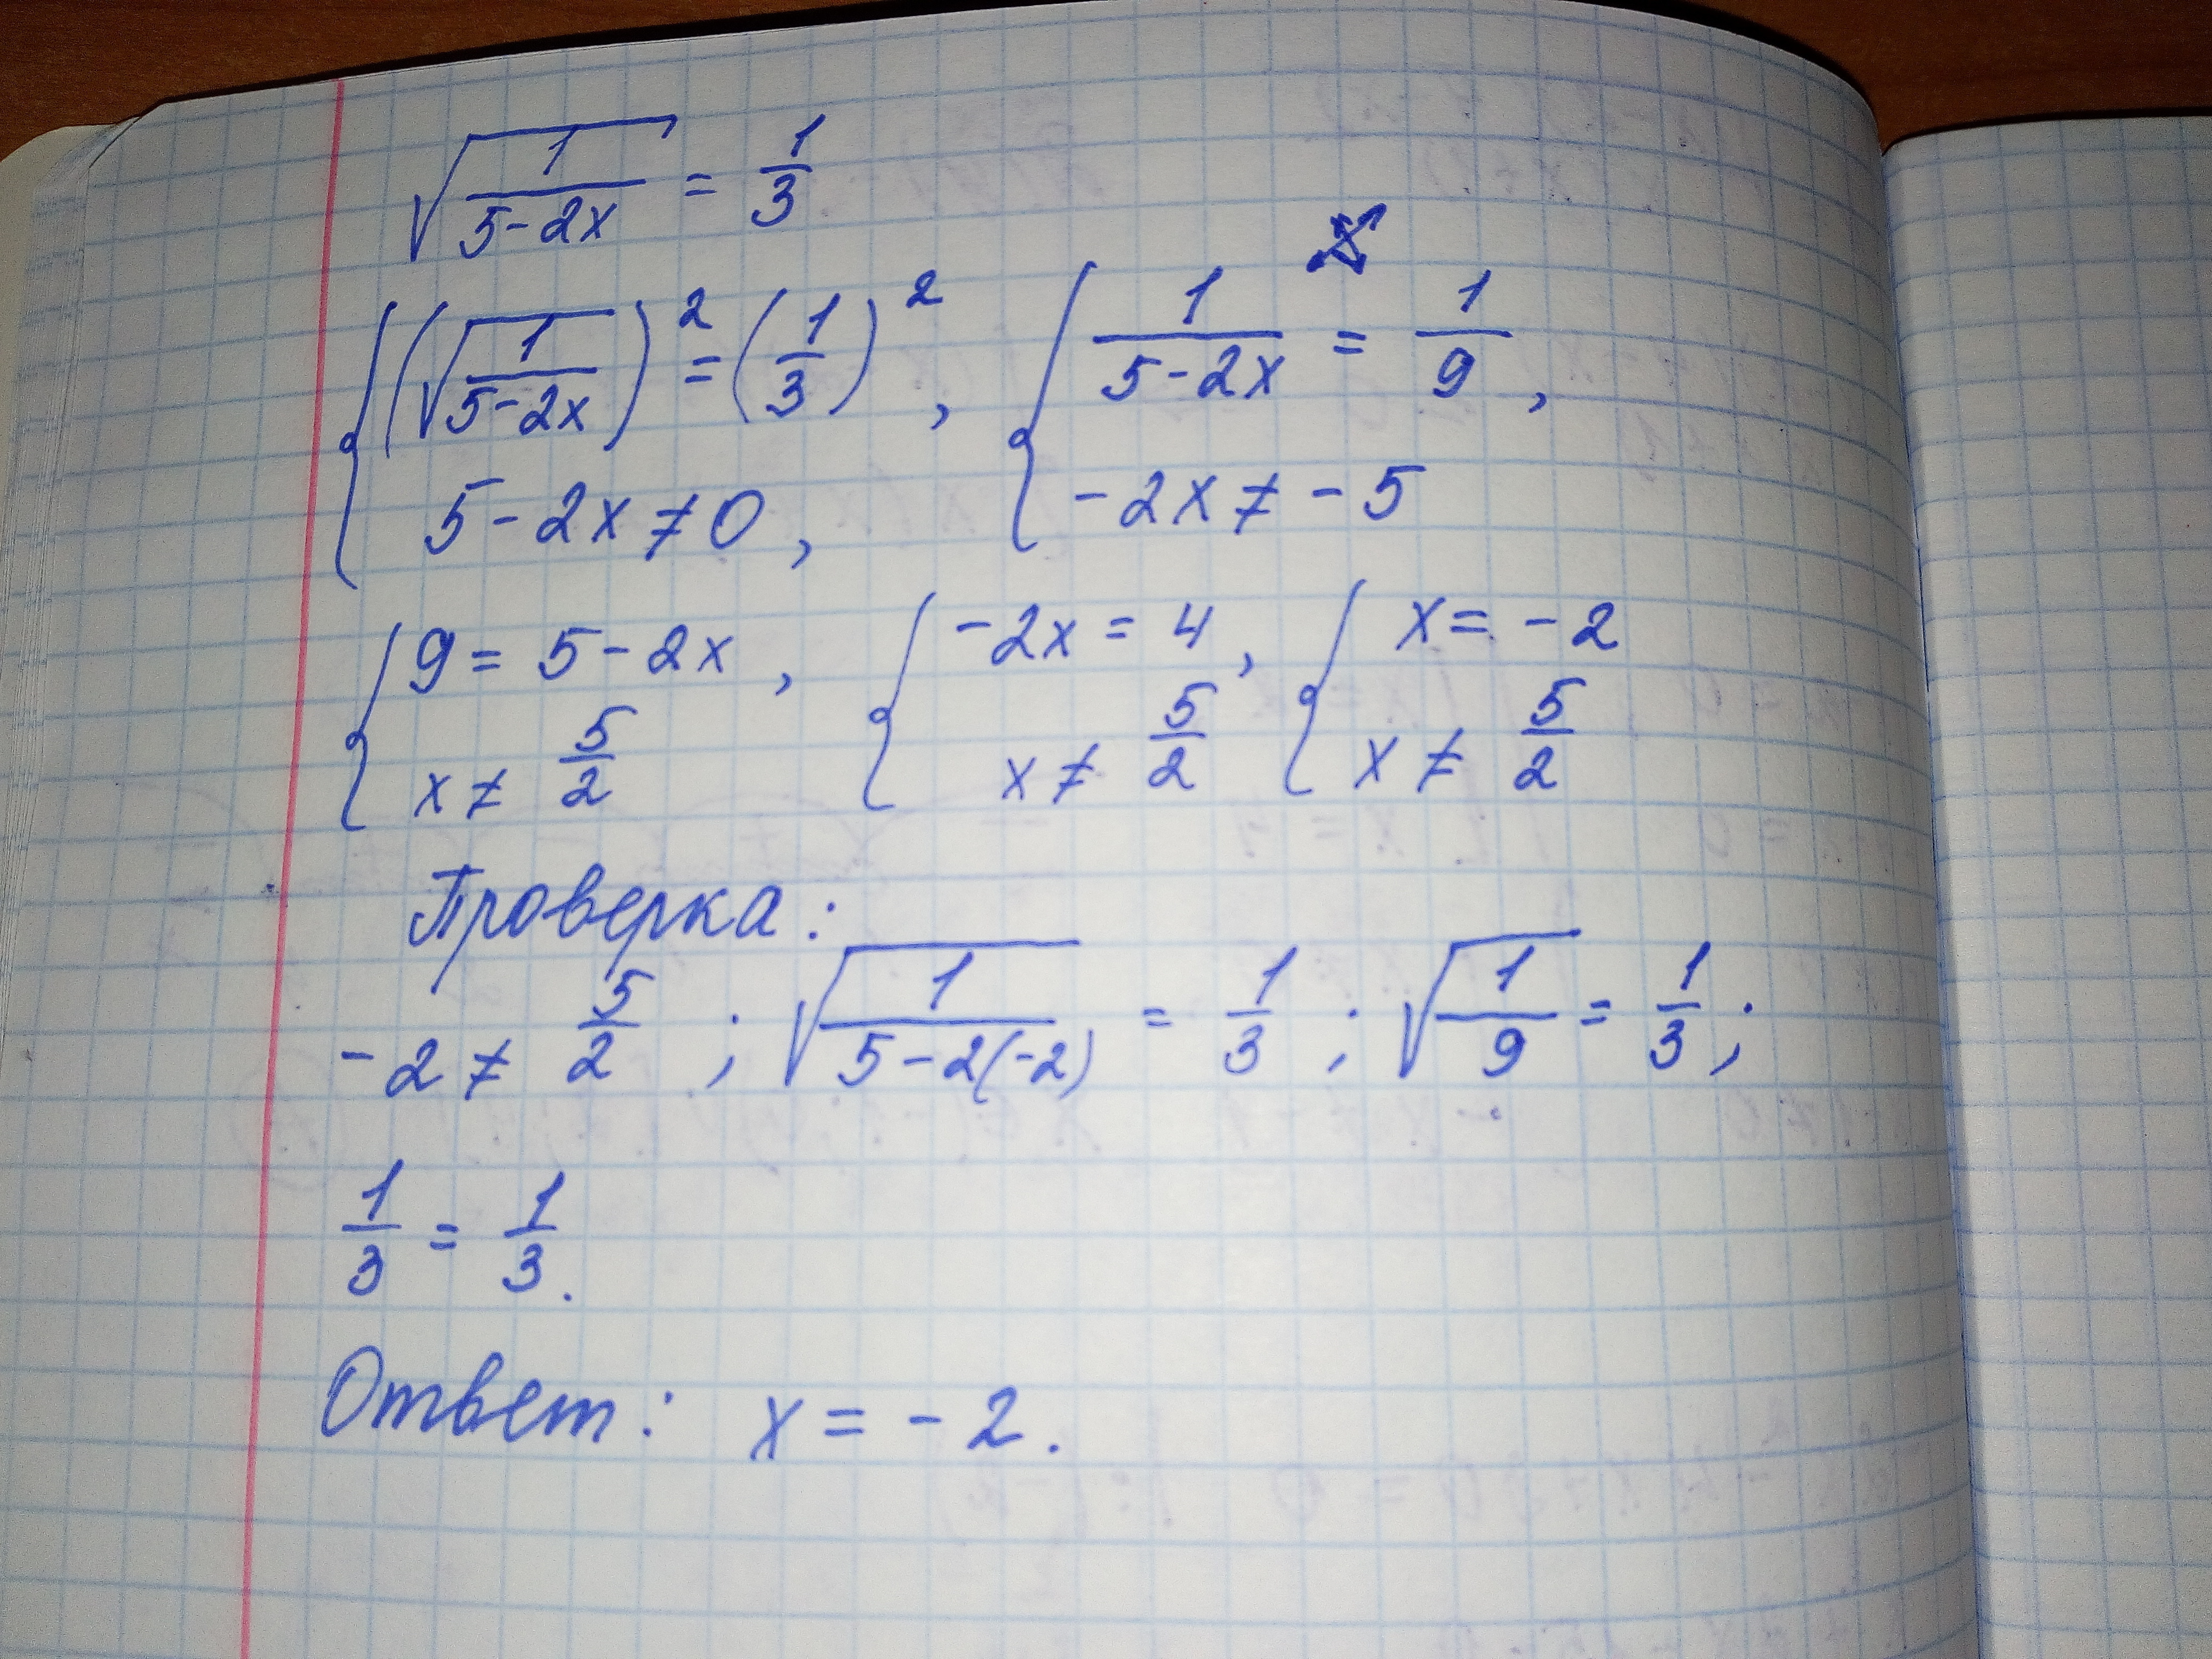 √(1/(5-2x)) = 1/3
{ (√(1/(5-2x)))² = (1/3)² , { 1/(5-2x) = 1/9 ,
5-2x ≠ 0 , -2x ≠ -5
{ 9 = 5-2x , { -2x = 4 , { x = -2
x ≠ 5/2 x ≠ 5/2 x ≠ 5/2
Проверка:
-2 ≠ 5/2 ; √(1/(5-2(-2))) = 1/3 ; √(1/9) = 1/3 ;
1/3 = 1/3 .
Ответ: x = -2.